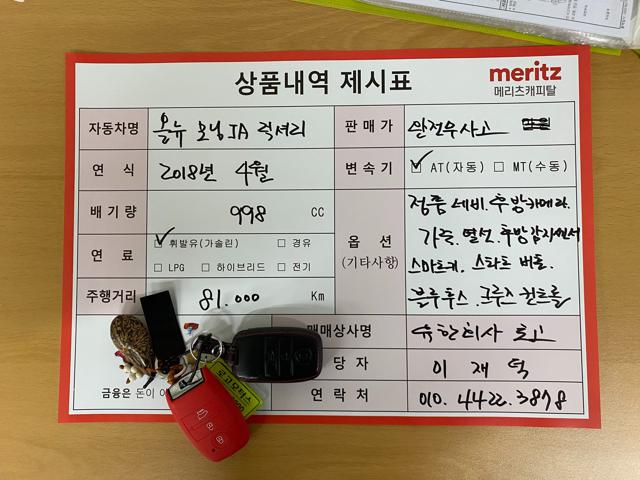 상품내역 제시표
meritz
메리츠캐피탈
자동차명 올뉴 모닝JA 럭셔리
판매가 완전무사고
연 식 2018년 4월
변속기 ☑ AT(자동) □ MT(수동)
배기량 998 CC
연 료 ☑ 휘발유(가솔린) □ 경유
□ LPG □ 하이브리드 □ 전기
주행거리 81.000 Km
옵 션
(기타사항)
정품 네비. 후방카메라.
가죽. 열선. 후방감지센서
스마트키. 스타트 버튼.
블루투스. 크루즈 컨트롤
매매상사명 유한회사 로고
당 자 이재덕
연 락 처 010.4422.3878
금융은 돈이 아
로고모터스